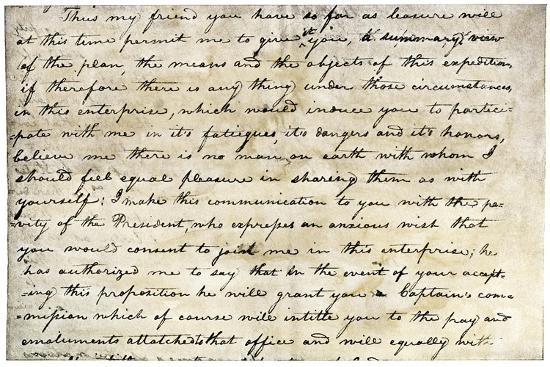 Thus my friend you have so far as leasure will
at this time permit me to give it you, a summary view
of the plan, the means and the objects of this expedition,
if therefore there is any thing under those circumstances,
in this enterprise, which would induce you to partici=
=pate with me in it's fatiegues, it's dangers and it's honors,
believe me there is no man on earth with whom I
should feel equal pleasure in sharing them as with
yourself; I make this communication to you with the pri=
=vity of the President, who expresses an anxious wish that
you would consent to join me in this enterprise; he
has authorized me to say that in the event of your accept=
=ing this proposition he will grant you a Captain's com=
=mission which of course will intitle you to the pay and
emoluments attatched to that office and will equally with